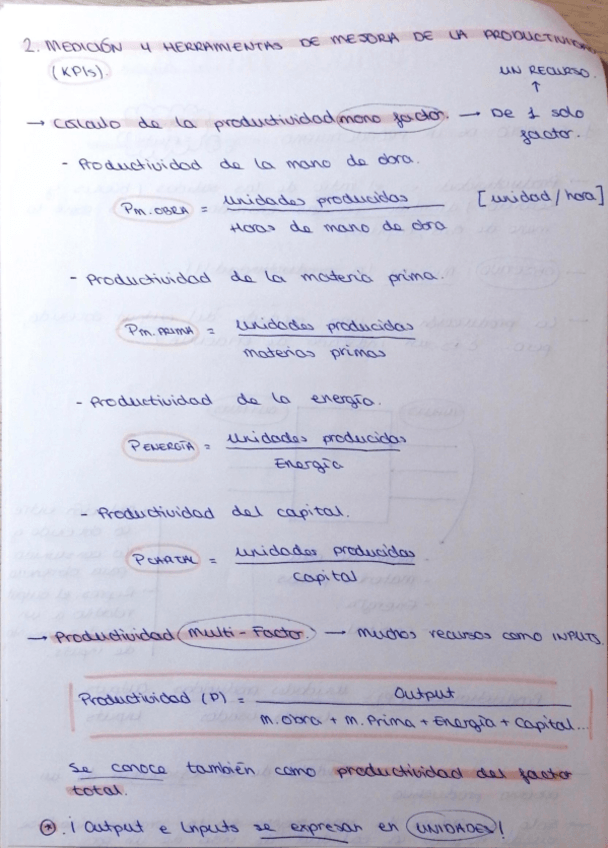 2. MEDICIÓN Y HERRAMIENTAS DE MEJORA DE LA PRODUCTIVIDAD
(KPIs).
UN RECURSO.
↑
→ Cálculo de la productividad mono factor. → De 1 solo
factor.
- Productividad de la mano de obra.
PM.OBRA = Unidades producidas / Horas de mano de obra [unidad/hora]
- Productividad de la materia prima.
PM.PRIMA = Unidades producidas / materias primas
- Productividad de la energía.
PENERGÍA = Unidades producidas / Energía
- Productividad del capital.
PCAPITAL = Unidades producidas / Capital
→ Productividad Multi-Factor. → Muchos recursos como INPUTS.
Productividad (P) = Output / M.Obra + M.Prima + Energía + Capital...
Se conoce también como productividad del factor
total.
→ ¡Output e Inputs se expresan en UNIDADES!